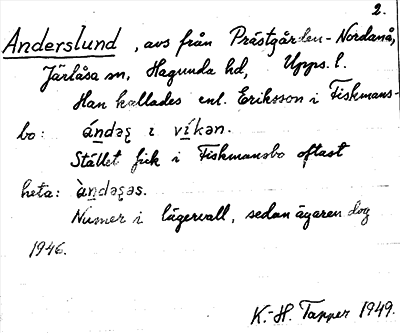 2.
Anderslund, avs från Prästgården-Nordanå,
Järlåsa sn, Hagunda hd, Upps. l.
Han kallades enl. Eriksson i Fiskmans-
bo: ándəʂ ɩ víkən.
Stället fick i Fiskmansbo oftast
heta: àndəʂas.
Numer i lägervall, sedan ägaren dog
1946.
K.-H. Tapper 1949.